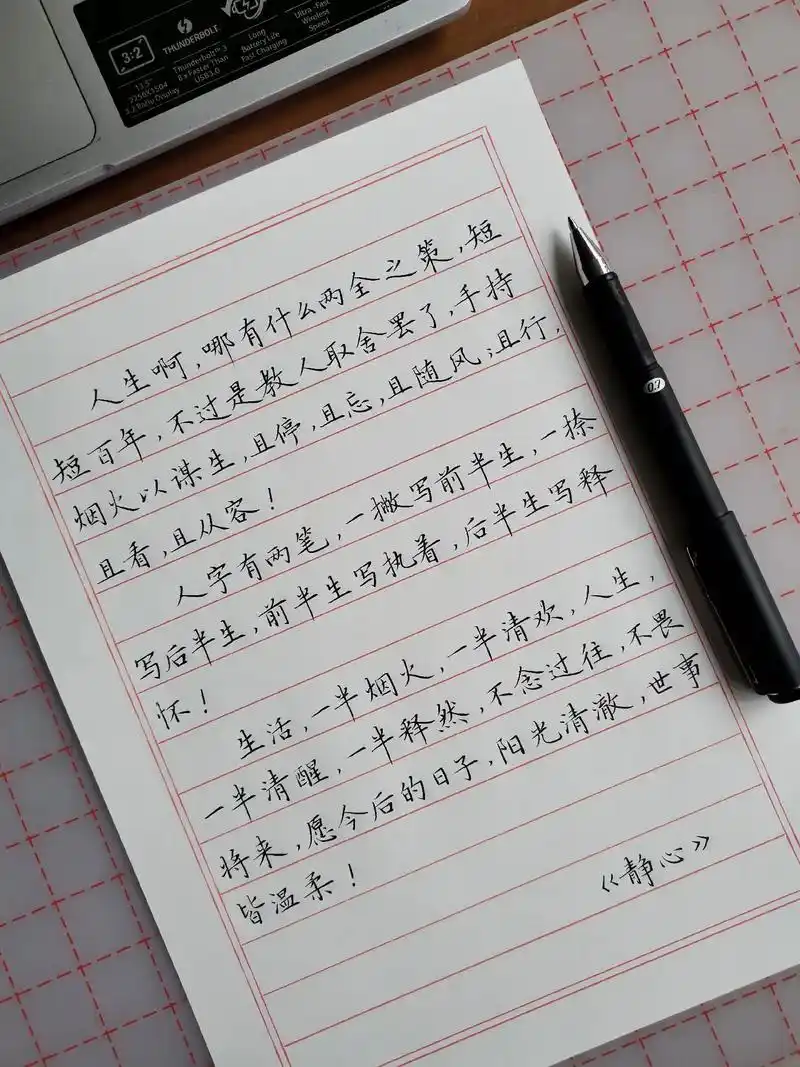 3:2
13.5"
2256X1504
3:2 Ratio Display
THUNDERBOLT™
Thunderbolt™ 3
8x Faster Than
USB3.0
Long
Battery Life
Fast Charging
Ultra-Fast
Wireless
Speed
人生啊,哪有什么两全之策,短
短百年,不过是教人取舍罢了,手持
烟火以谋生,且停,且忘,且随风;且行,
且看,且从容!
人字有两笔,一撇写前半生,一捺
写后半生,前半生写执着,后半生写释
怀!
生活,一半烟火,一半清欢,人生,
一半清醒,一半释然,不念过往,不畏
将来,愿今后的日子,阳光清澈,世事
皆温柔!
《静心》
0.7